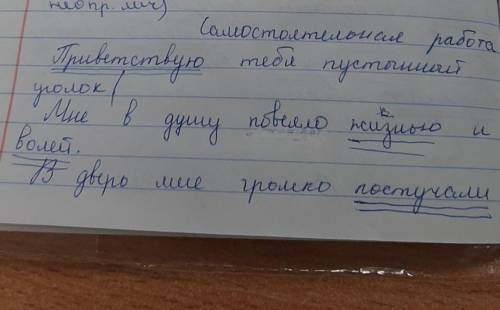 неопр. лич)
Самостоятельная работа
Приветствую тебя пустынный
уголок!
Мне в душу повеяло жизнью и
волей.
В дверь мне громко постучали